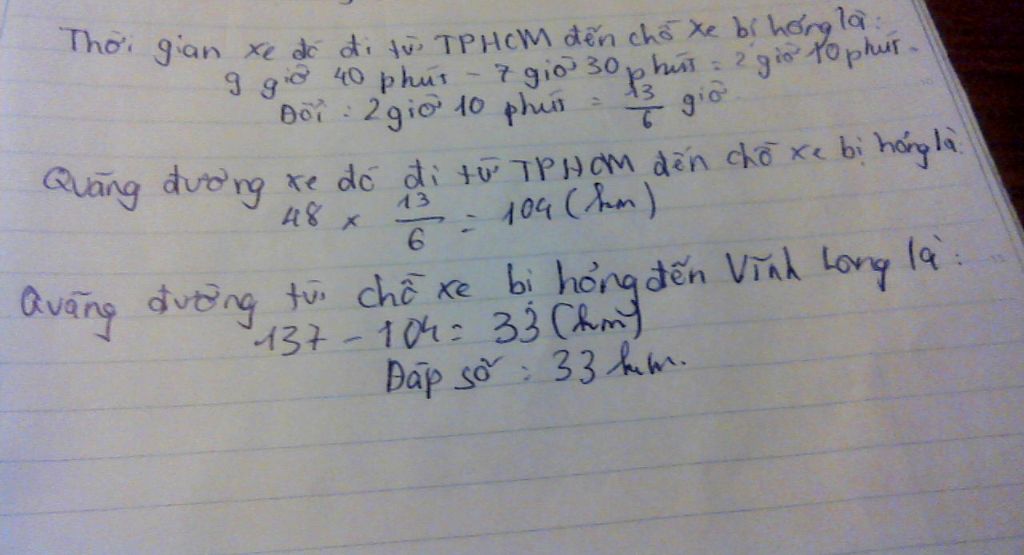 Thời gian xe đó đi từ TPHCM đến chỗ xe bị hỏng là:
9 giờ 40 phút - 7 giờ 30 phút = 2 giờ 10 phút.
Đổi : 2 giờ 10 phút = 13/6 giờ
Quãng đường xe đó đi từ TPHCM đến chỗ xe bị hỏng là:
48 x 13/6 = 104 (km)
Quãng đường từ chỗ xe bị hỏng đến Vĩnh Long là:
137 - 104 = 33 (km)
Đáp số : 33 km.